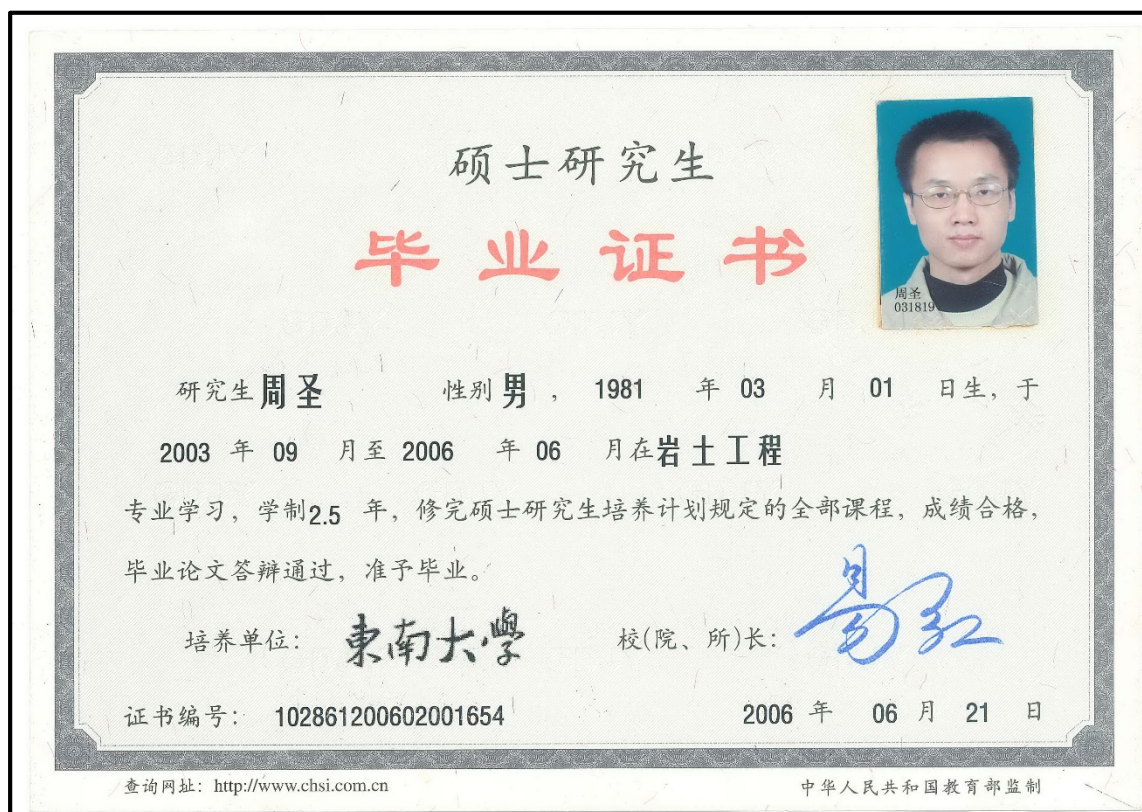 硕士研究生
毕业证书
周圣
031819
研究生周圣 性别男，1981 年 03 月 01 日生，于
2003 年 09 月至 2006 年 06 月在岩土工程
专业学习，学制2.5 年，修完硕士研究生培养计划规定的全部课程，成绩合格，
毕业论文答辩通过，准予毕业。
培养单位：東南大學 校(院、所)长：易红
证书编号：102861200602001654 2006 年 06 月 21 日
查询网址：http://www.chsi.com.cn 中华人民共和国教育部监制